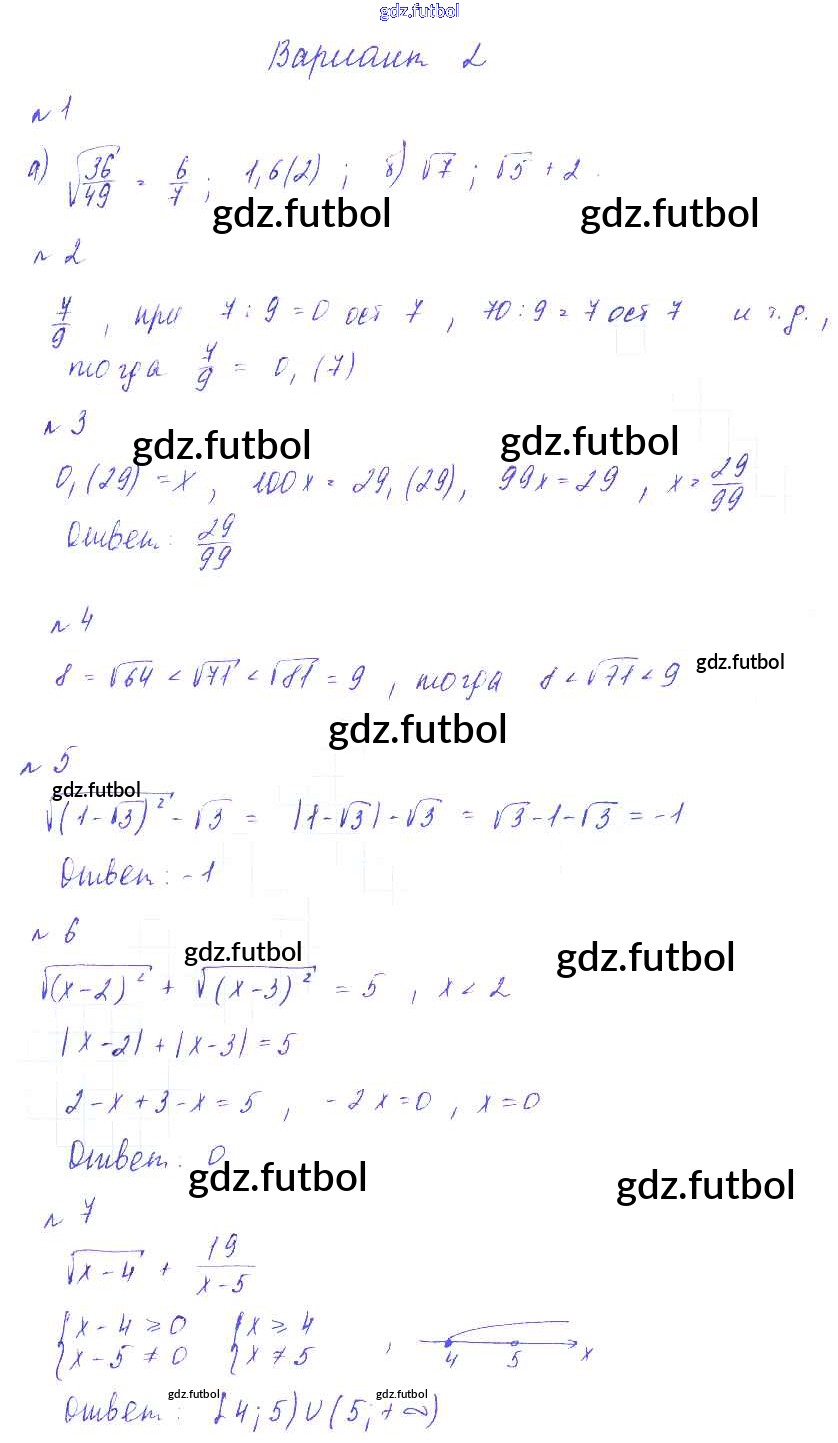 gdz.futbol
Вариант 2
N 1
а) √(36/49) = 6/7 ; 1,6(2) ; б) √7 ; √5 + 2 .
gdz.futbol gdz.futbol
N 2
7/9 , при 7 : 9 = 0 ост 7 , 70 : 9 = 7 ост 7 и т.д.,
тогда 7/9 = 0,(7)
N 3
gdz.futbol gdz.futbol
0,(29) = x , 100x = 29,(29), 99x = 29 , x = 29/99
Ответ: 29/99
N 4
8 = √64 < √71 < √81 = 9 , тогда 8 < √71 < 9 gdz.futbol
gdz.futbol
N 5
gdz.futbol
√(1-√3)² - √3 = |1-√3| - √3 = √3 - 1 - √3 = -1
Ответ: -1
N 6
gdz.futbol gdz.futbol
√(x-2)² + √(x-3)² = 5 , x < 2
|x-2| + |x-3| = 5
2 - x + 3 - x = 5 , -2x = 0 , x = 0
Ответ: 0
gdz.futbol gdz.futbol
N 7
√x-4 + 19/(x-5)
{x - 4 ≥ 0 {x ≥ 4
{x - 5 ≠ 0 {x ≠ 5 , 4 5 x
gdz.futbol gdz.futbol
Ответ: [4; 5) ∪ (5; +∞)